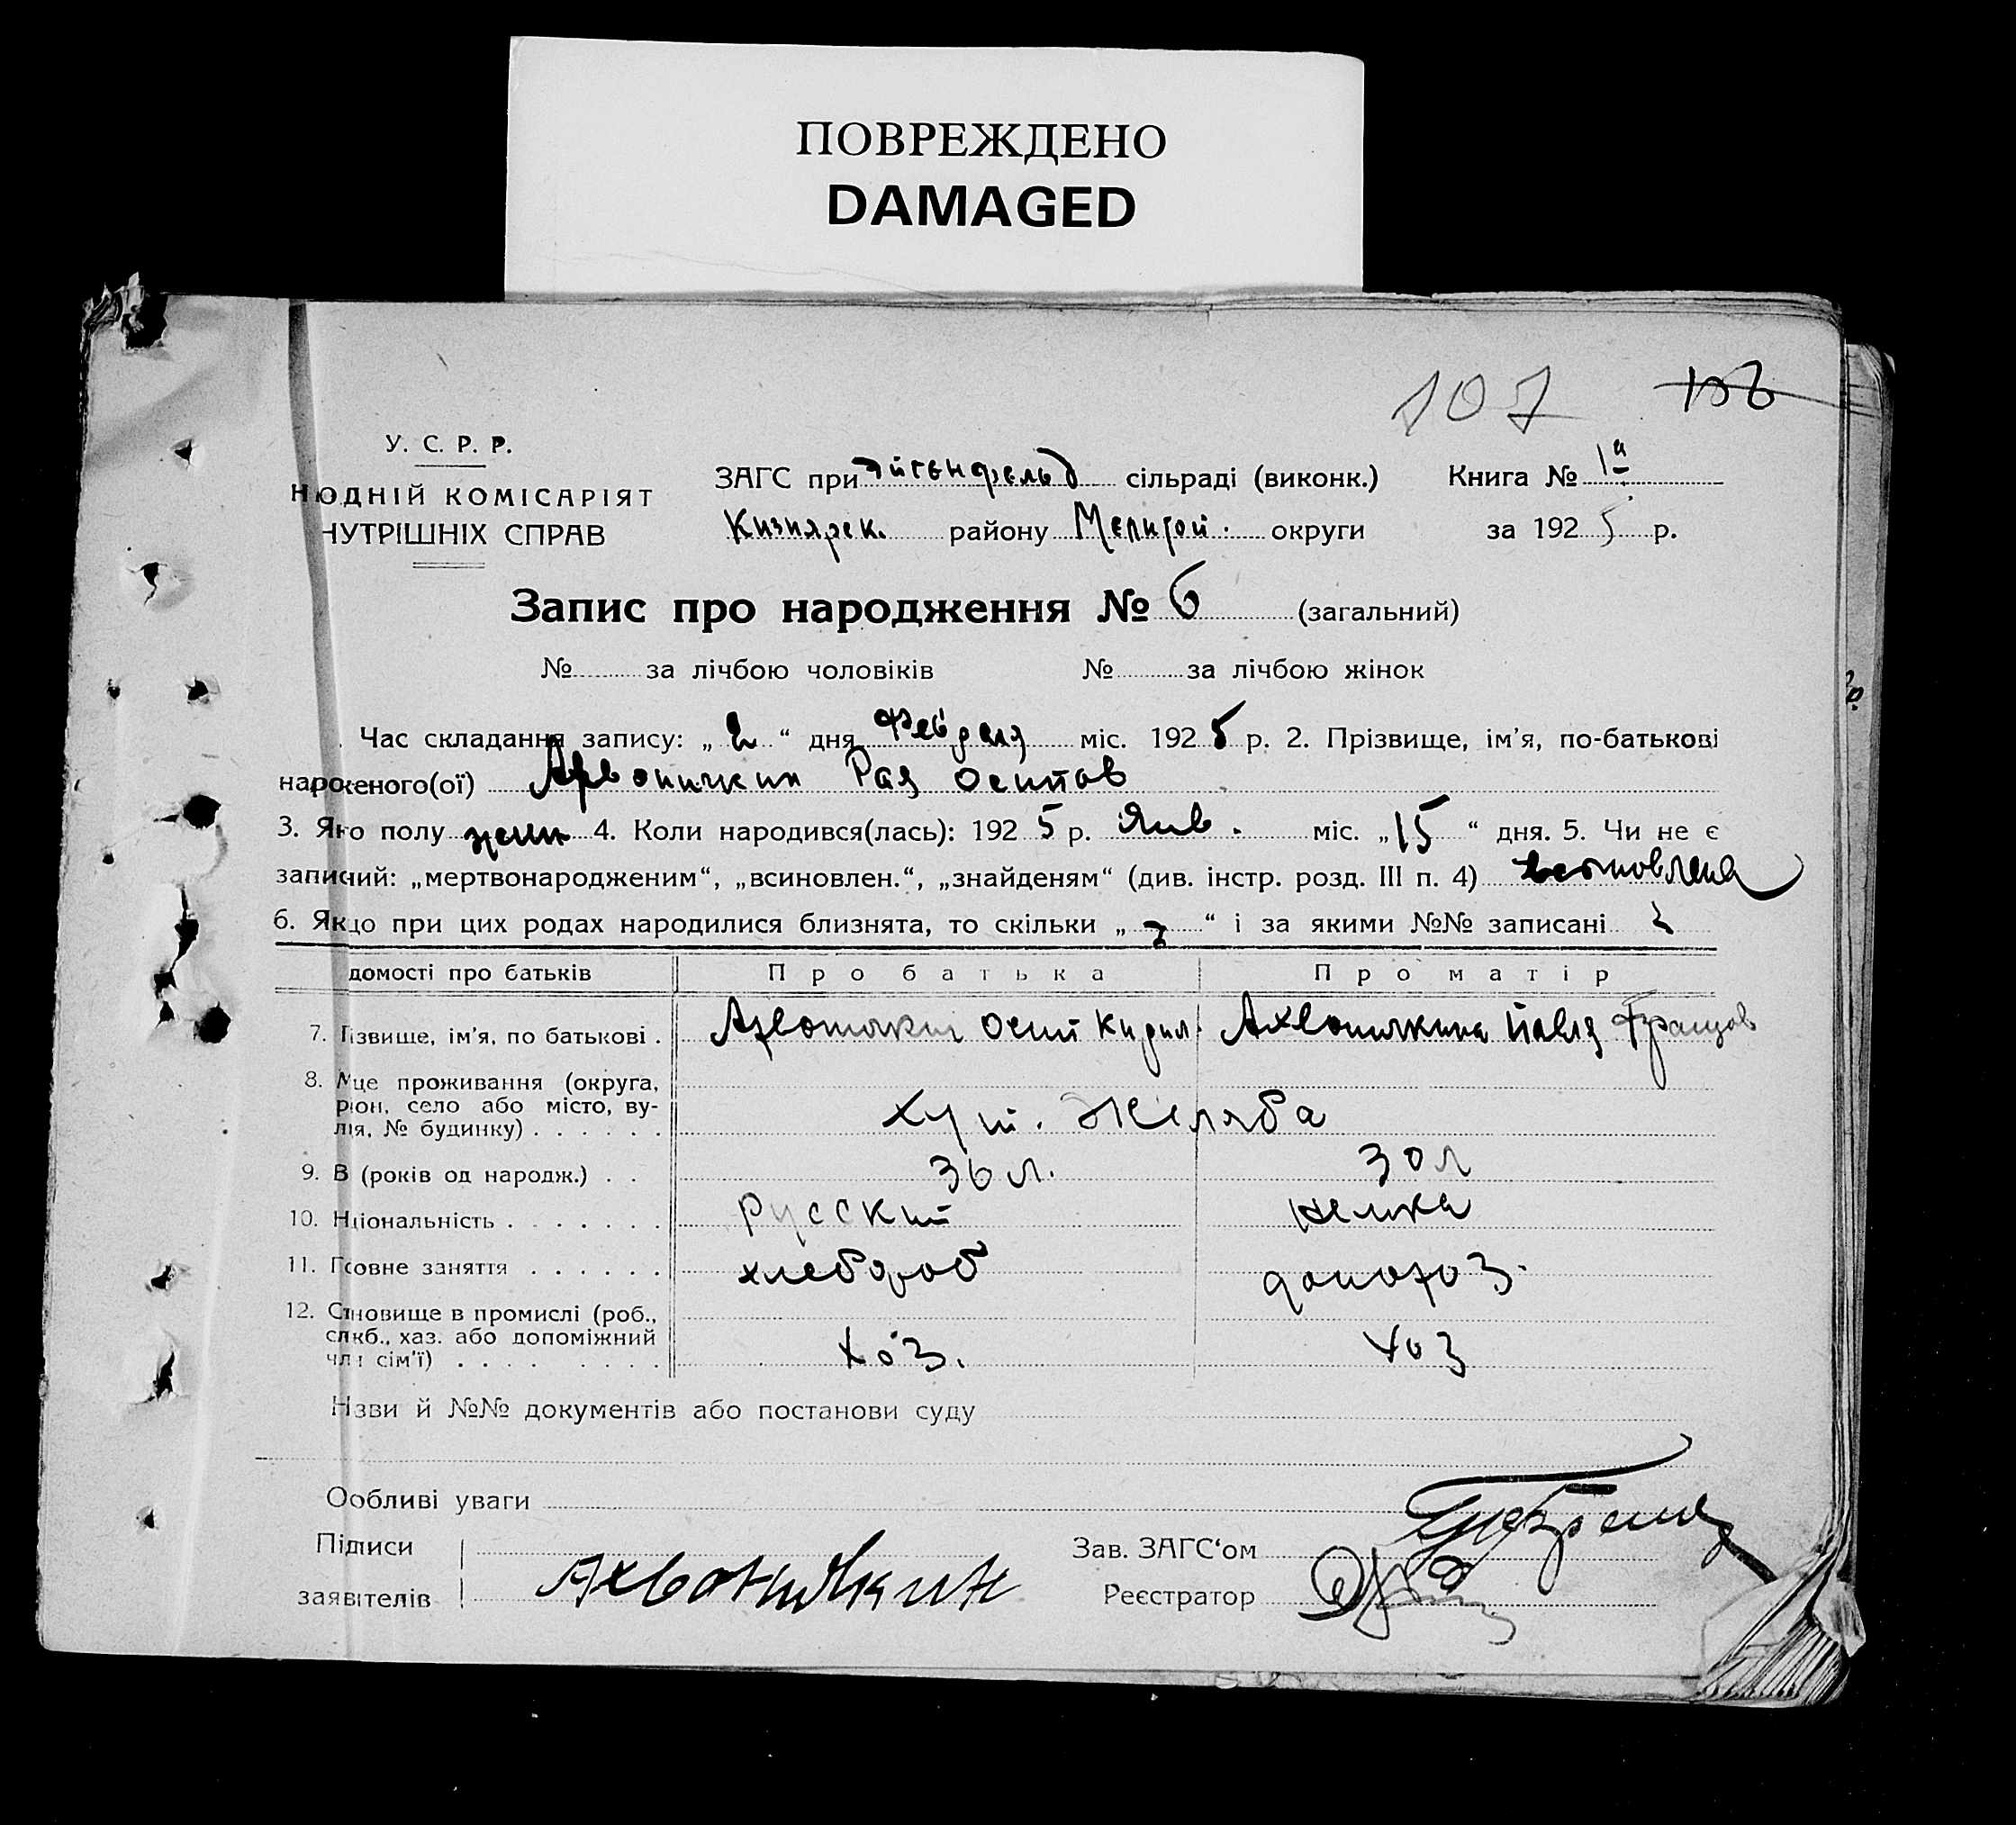 ПОВРЕЖДЕНО
DAMAGED
107 106
У. С. Р. Р.
НЮДНІЙ КОМІСАРІЯТ
НУТРІШНІХ СПРАВ
ЗАГС при Эйгенфельд сільраді (виконк.) Книга № 1а
Кизиярск. району Мелитой. округи за 1925 р.
Запис про народження № 6 (загальний)
№ за лічбою чоловіків № за лічбою жінок
Час складання запису: „2“ дня Февраля міс. 1925 р. 2. Прізвище, ім'я, по-батькові
нароженого(ої) Рая Осипов
3. Яго полу женн 4. Коли народився(лась): 1925 р. Янв. міс. „15“ дня. 5. Чи не є
записаний: „мертвонародженим“, „всиновлен.“, „знайденям“ (див. інстр. розд. III п. 4)
6. Якщо при цих родах народилися близнята, то скільки „ “ і за якими №№ записані
домості про батьків Про батька Про матір
7. Пізвище, ім'я, по батькові . Осип Кирил. Ахвоничкина Павля Францов
8. Мце проживання (округа,
ріон, село або місто, ву-
лія, № будинку) . . . . . . хут. Желяба
9. В (років од народж.) . . 36 л. 30 л
10. Національність . . . . . . . Русский немка
11. Головне заняття . . . . . . хлебороб домохоз.
12. Становище в промислі (роб.,
служб., хаз. або допоміжний
член сім'ї) . . . . . . . . хоз. хоз
Назви й №№ документів або постанови суду
Особливі уваги
Підписи Зав. ЗАГС‘ом
заявітелів Ахвоничкин Реєстратор